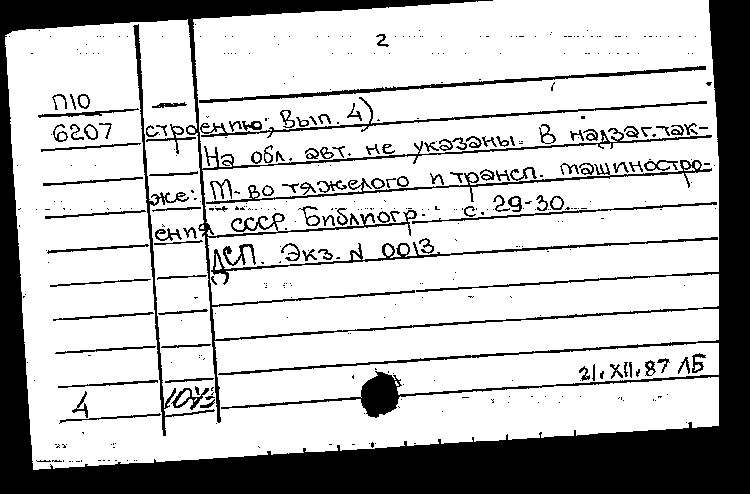 2
П10
6207
строению; Вып. 4).
На обл. авт. не указаны. В надзаг. так-
же: М-во тяжелого и трансп. машиностро-
ения СССР. Библиогр.: с. 29-30.
ДСП. Экз. N 0013.
21.XII.87 ЛБ
4